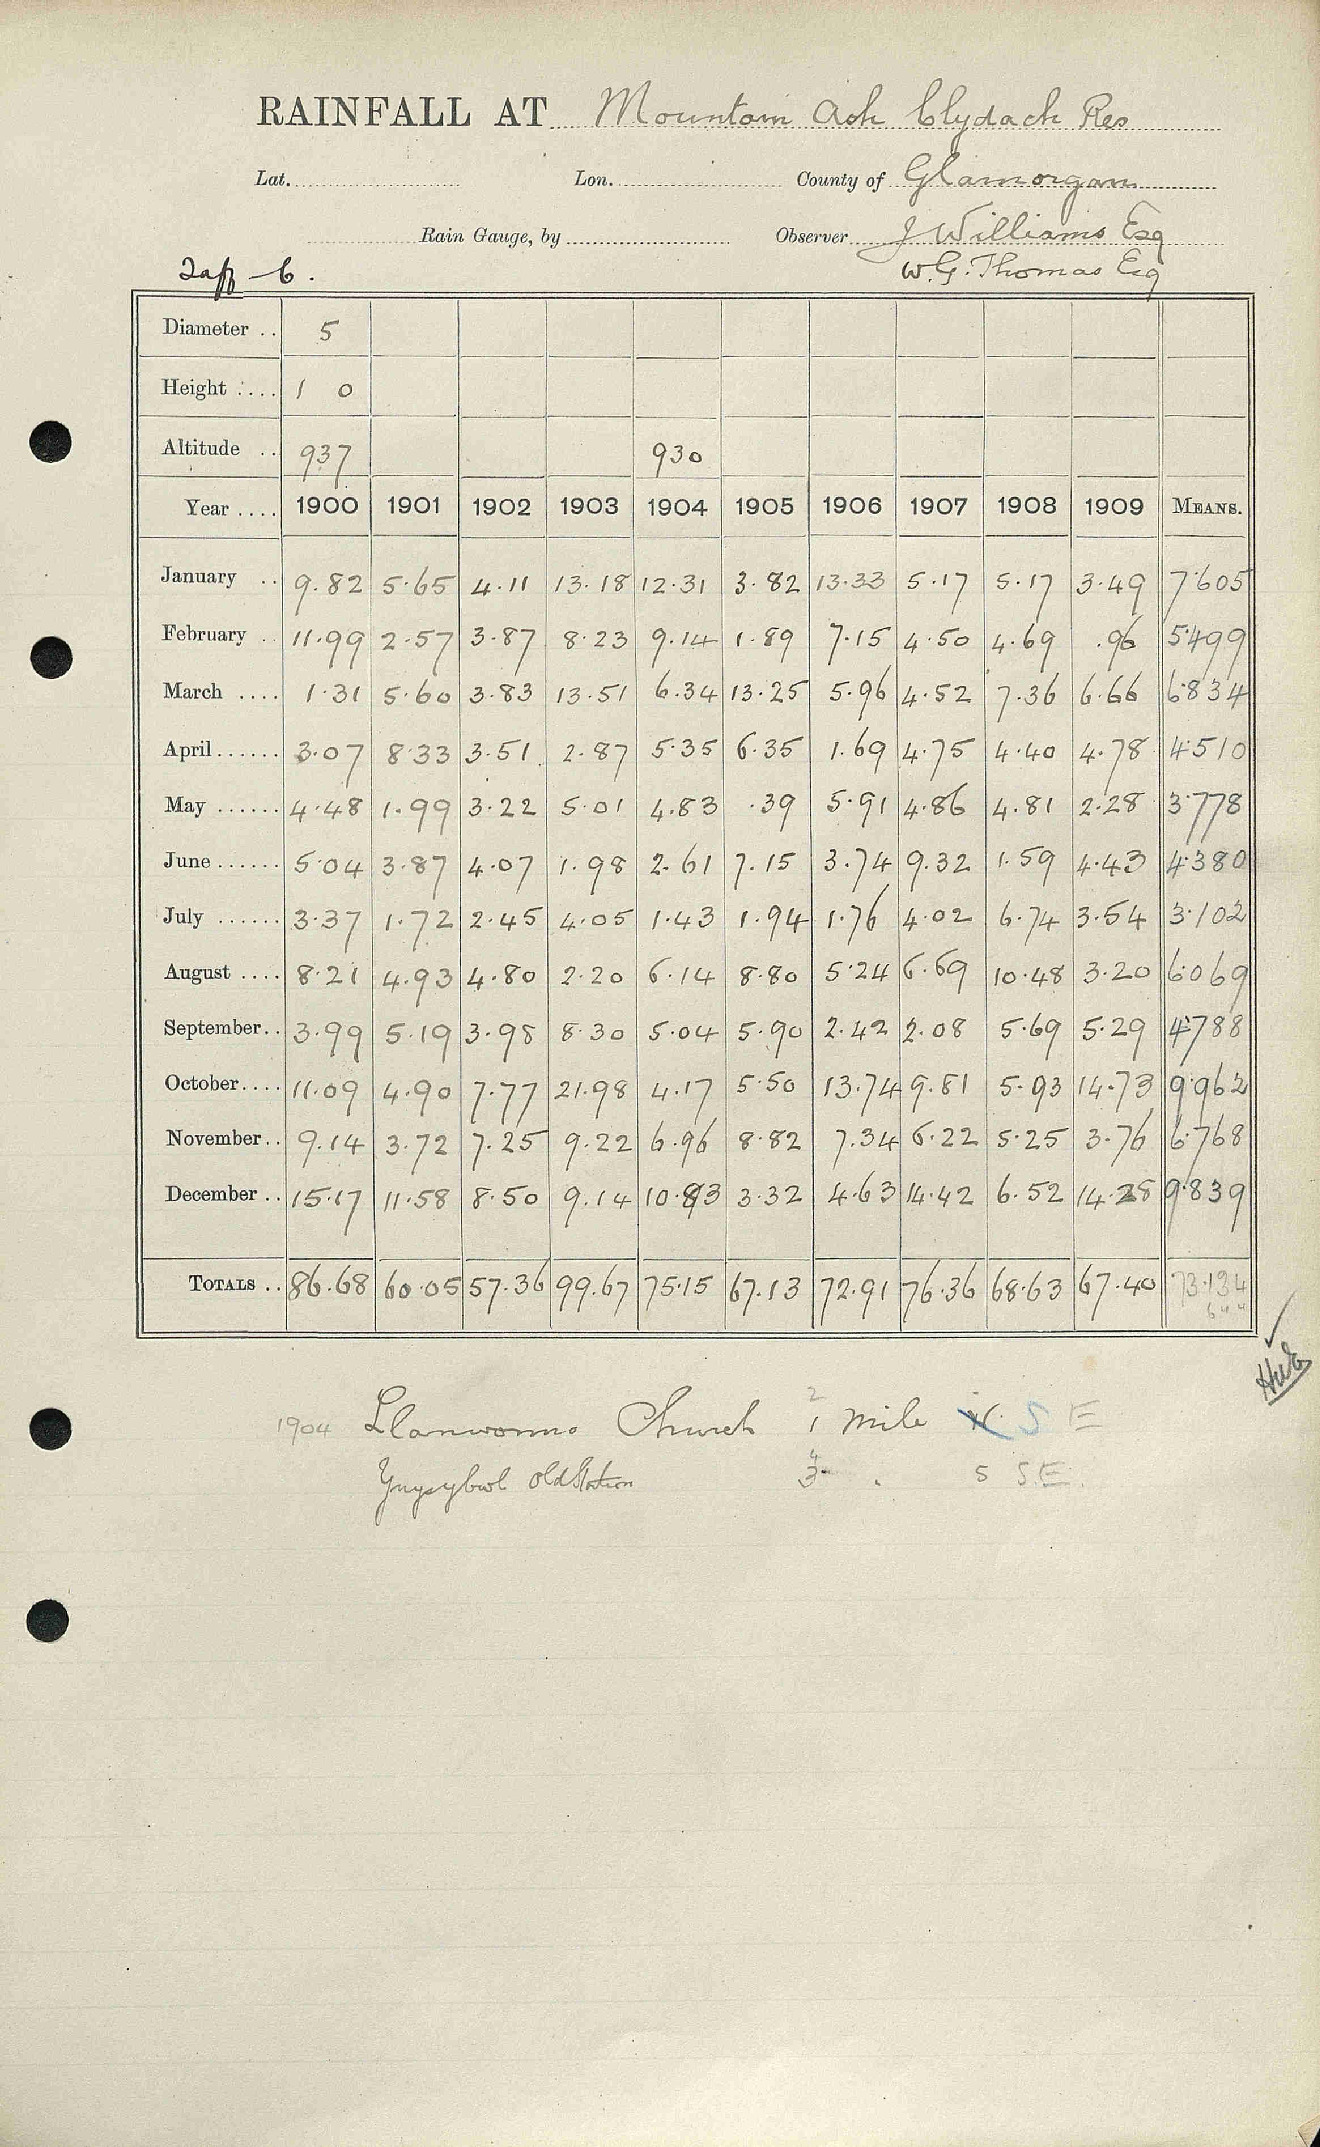 RAINFALL AT Mountain Ash Clydach Res
Lat. Lon. County of Glamorgan
Rain Gauge, by Observer J Williams Esq
Taff — 6. W. G. Thomas Esq
Diameter .. 5
Height .... 1 0
Altitude .. 937 930
Year .... 1900 1901 1902 1903 1904 1905 1906 1907 1908 1909 MEANS.
January .. 9.82 5.65 4.11 13.18 12.31 3.82 13.33 5.17 5.17 3.49 7.605
February .. 11.99 2.57 3.87 8.23 9.14 1.89 7.15 4.50 4.69 .96 5.499
March .... 1.31 5.60 3.83 13.51 6.34 13.25 5.96 4.52 7.36 6.66 6.834
April ...... 3.07 8.33 3.51 2.87 5.35 6.35 1.69 4.75 4.40 4.78 4.510
May ...... 4.48 1.99 3.22 5.01 4.83 .39 5.91 4.86 4.81 2.28 3.778
June ...... 5.04 3.87 4.07 1.98 2.61 7.15 3.74 9.32 1.59 4.43 4.380
July ...... 3.37 1.72 2.45 4.05 1.43 1.94 1.76 4.02 6.74 3.54 3.102
August .... 8.21 4.93 4.80 2.20 6.14 8.80 5.24 6.69 10.48 3.20 6.069
September .. 3.99 5.19 3.98 8.30 5.04 5.90 2.42 2.08 5.69 5.29 4.788
October .... 11.09 4.90 7.77 21.98 4.17 5.50 13.74 9.81 5.93 14.73 9.962
November .. 9.14 3.72 7.25 9.22 6.96 8.82 7.34 6.22 5.25 3.76 6.768
December .. 15.17 11.58 8.50 9.14 10.83 3.32 4.63 14.42 6.52 14.28 9.839
TOTALS .. 86.68 60.05 57.36 99.67 75.15 67.13 72.91 76.36 68.63 67.40 73.134
1904 Llanwonno Church 1 mile S E
2
Ynysybwl Old Station 3 S S.E.
4